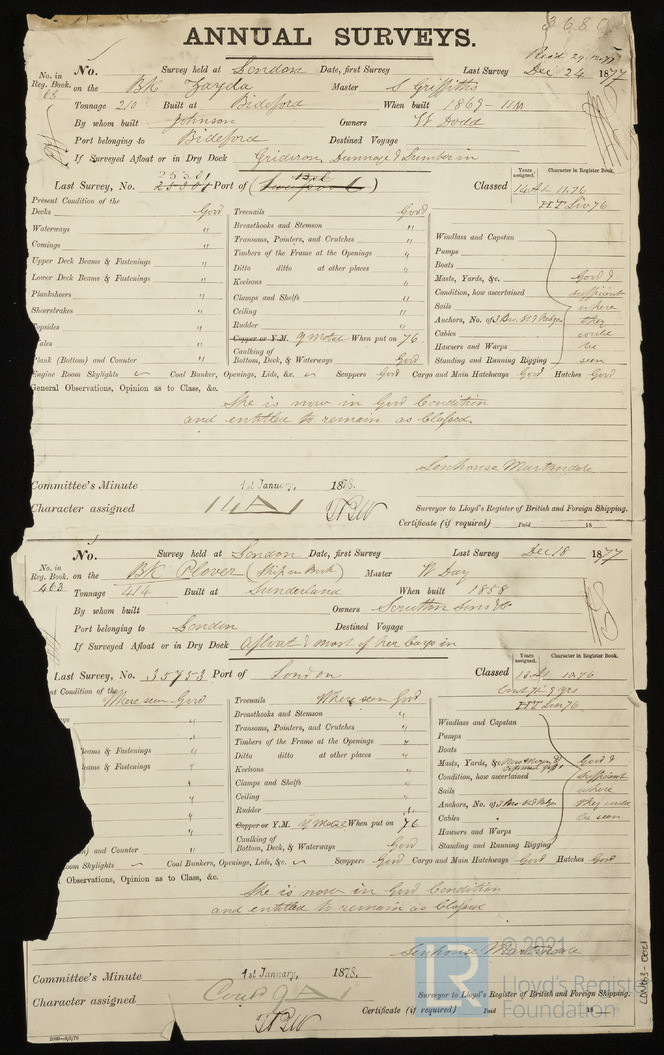 ANNUAL SURVEYS.
No. Survey held at London Date, first Survey Last Survey Dec 24 1877
No. in Reg. Book. 68 on the BK Zayda Master S Griffiths
Tonnage 210 Built at Bideford When built 1869-11M
By whom built Johnson Owners W Dodd
Port belonging to Bideford Destined Voyage
If Surveyed Afloat or in Dry Dock Gridiron, Dunnage & Lumber in
Last Survey, No. Port of Classed
Years assigned. Character in Register Book.
14A1 11.76
HT Liv 76
Present Condition of the
Decks Good
Waterways "
Comings "
Upper Deck Beams & Fastenings "
Lower Deck Beams & Fastenings "
Planksheers "
Sheerstrakes "
Topsides "
Wales "
Plank (Bottom) and Counter "
Treenails Good
Breasthooks and Stemson "
Transoms, Pointers, and Crutches "
Timbers of the Frame at the Openings "
Ditto ditto at other places "
Keelsons "
Clamps and Shelfs "
Ceiling "
Rudder "
Copper or Y.M. Y Metal When put on 76
Caulking of Bottom, Deck, & Waterways Good
Windlass and Capstan
Pumps
Boats
Masts, Yards, &c.
Condition, how ascertained
Sails
Anchors, No. of
Cables
Hawsers and Warps
Standing and Running Rigging
Good & sufficient where they could be seen
Engine Room Skylights Coal Bunkers, Openings, Lids, &c. Scuppers Good Cargo and Main Hatchways Good Hatches Good
General Observations, Opinion as to Class, &c.
She is now in Good Condition
and entitled to remain as Classed.
Senhouse Martindale
Committee's Minute 1st January, 1878.
Character assigned 14A1
Surveyor to Lloyd's Register of British and Foreign Shipping.
Certificate (if required) Paid 18
No. Survey held at London Date, first Survey Last Survey Dec 18 1877
No. in Reg. Book. 463 on the BK Plover (Ship in Book) Master W Day
Tonnage 414 Built at Sunderland When built 1858
By whom built Owners Scrutton Sons & Co
Port belonging to London Destined Voyage
If Surveyed Afloat or in Dry Dock Afloat & most of her Cargo in
Last Survey, No. 35753 Port of London Classed
Years assigned. Character in Register Book.
13A1 10.76
Cont 71-9 yrs
HT Lon 76
nt Condition of the
Where seen Good
Beams & Fastenings "
Beams & Fastenings "
) and Counter "
Treenails Where seen Good
Breasthooks and Stemson "
Transoms, Pointers, and Crutches "
Timbers of the Frame at the Openings "
Ditto ditto at other places "
Keelsons "
Clamps and Shelfs "
Ceiling "
Rudder "
Copper or Y.M. Y Metal When put on 76
Caulking of Bottom, Deck, & Waterways Good
Windlass and Capstan
Pumps
Boats
Masts, Yards, &c.
Condition, how ascertained
Sails
Anchors, No. of
Cables
Hawsers and Warps
Standing and Running Rigging
Good & sufficient where they could be seen
oom Skylights Coal Bunkers, Openings, Lids, &c. Scuppers Good Cargo and Main Hatchways Good Hatches Good
l Observations, Opinion as to Class, &c.
She is now in Good Condition
and entitled to remain as Classed
Senhouse Martindale
Committee's Minute 1st January, 1878.
Character assigned Contd 9 A1
Surveyor to Lloyd's Register of British and Foreign Shipping.
Certificate (if required) Paid 18
© 2021
LR
Lloyd's Regist
Foundation